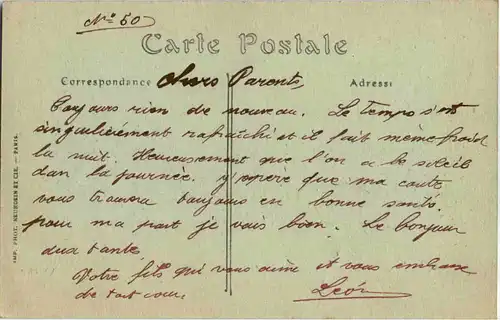 N° 50
Carte Postale
Correspondance
Chers Parents,
Adresse
Toujours rien de nouveau. Le temps s'est
singulièrement rafraîchi et il fait même froid
la nuit. Heureusement que l'on a le soleil
dan la journée. j'y espère que ma carte
vous trouvra toujours en bonne santé.
pour ma part je vais bien. Le bonjour
aux tantes
Votre fils qui vous aime et vous embrasse
de tout cœur.
Léon
IMP. PHOT. NEURDEIN ET CIE. — PARIS.